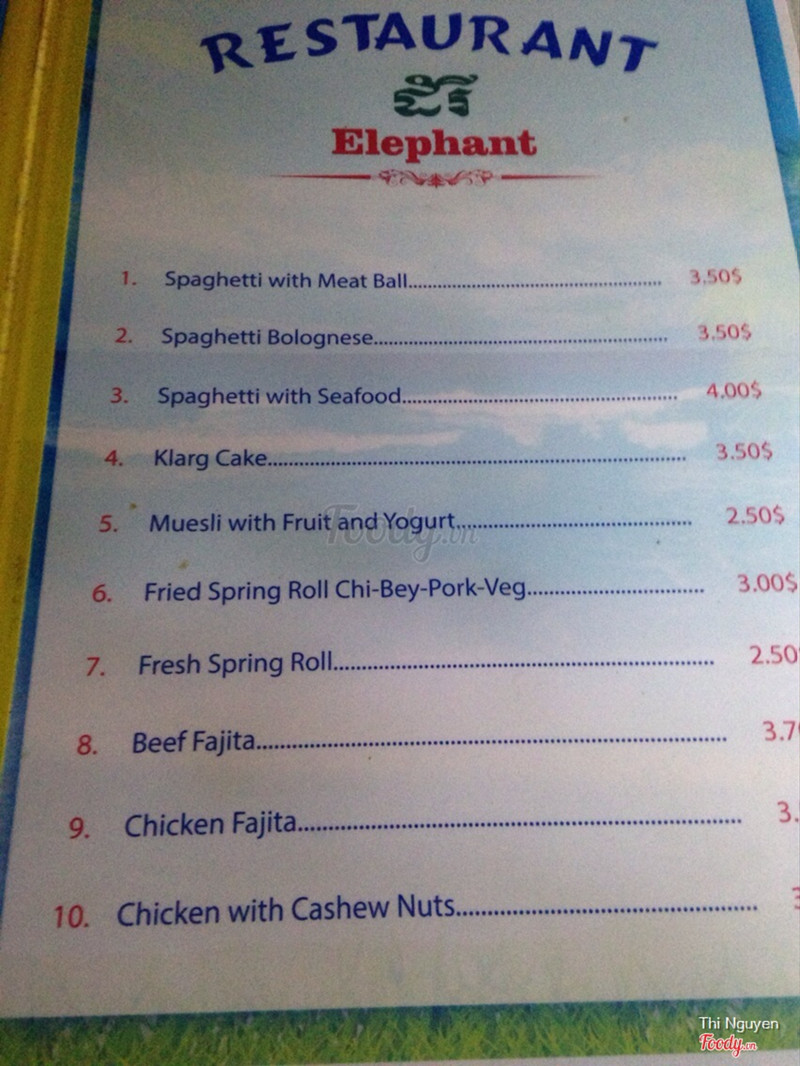 RESTAURANT
ដំរី
Elephant
1. Spaghetti with Meat Ball 3.50$
2. Spaghetti Bolognese 3.50$
3. Spaghetti with Seafood 4.00$
4. Klarg Cake 3.50$
5. Muesli with Fruit and Yogurt 2.50$
6. Fried Spring Roll Chi-Bey-Pork-Veg 3.00$
7. Fresh Spring Roll 2.50
8. Beef Fajita 3.7
9. Chicken Fajita 3.
10. Chicken with Cashew Nuts 3
Foody.vn
Thi Nguyen
Foody.vn